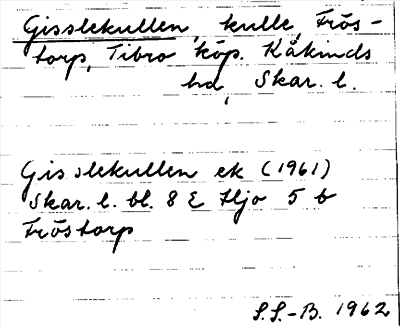 Gisslekullen, kulle, Frös-
torp, Tibro köp. Kåkinds
hd, Skar. l.
Gisslekullen ek (1961)
Skar. l. bl. 8 E Hjo 5 b
Fröstorp
S.S.-B. 1962